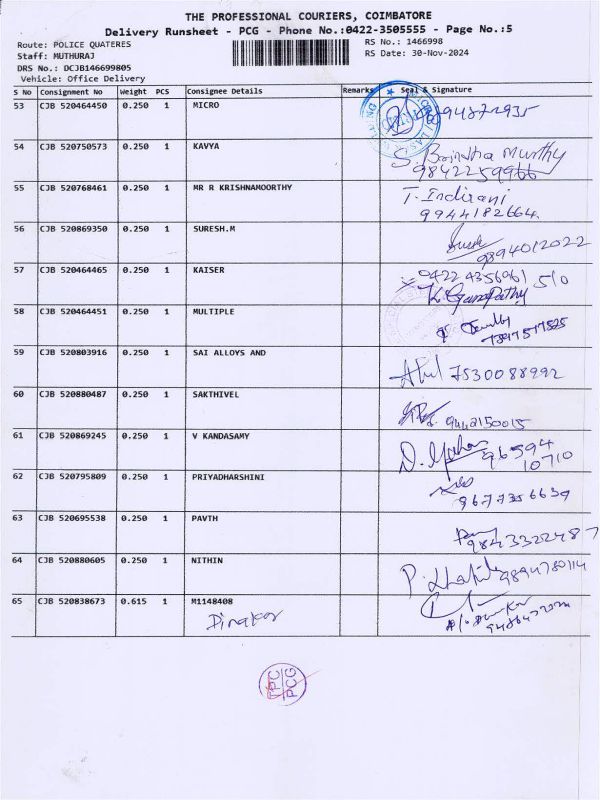 THE PROFESSIONAL COURIERS, COIMBATORE
Delivery Runsheet - PCG - Phone No.:0422-3505555 - Page No.:5
Route: POLICE QUATERES
RS No.: 1466998
Staff: MUTHURAJ
RS Date: 30-Nov-2024
DRS No.: DCJB146699805
Vehicle: Office Delivery
S No Consignment No Weight PCS Consignee Details Remarks Seal & Signature
53 CJB 520464450 0.250 1 MICRO
54 CJB 520750573 0.250 1 KAVYA S. Brindha Murthy
9842259966
55 CJB 520768461 0.250 1 MR R KRISHNAMOORTHY T. Indirani
9944182664
56 CJB 520869350 0.250 1 SURESH.M
9894012022
57 CJB 520464465 0.250 1 KAISER 0422 4356961
K. Ganapathy
58 CJB 520464451 0.250 1 MULTIPLE
7397517525
59 CJB 520803916 0.250 1 SAI ALLOYS AND
Atul 7530088992
60 CJB 520880487 0.250 1 SAKTHIVEL
9442150015
61 CJB 520869245 0.250 1 V KANDASAMY 96594
10710
62 CJB 520795809 0.250 1 PRIYADHARSHINI
9677356639
63 CJB 520695538 0.250 1 PAVTH
9843322487
64 CJB 520880605 0.250 1 NITHIN
9894780114
65 CJB 520838673 0.615 1 M1148408
Dinakar
TPC
PCG